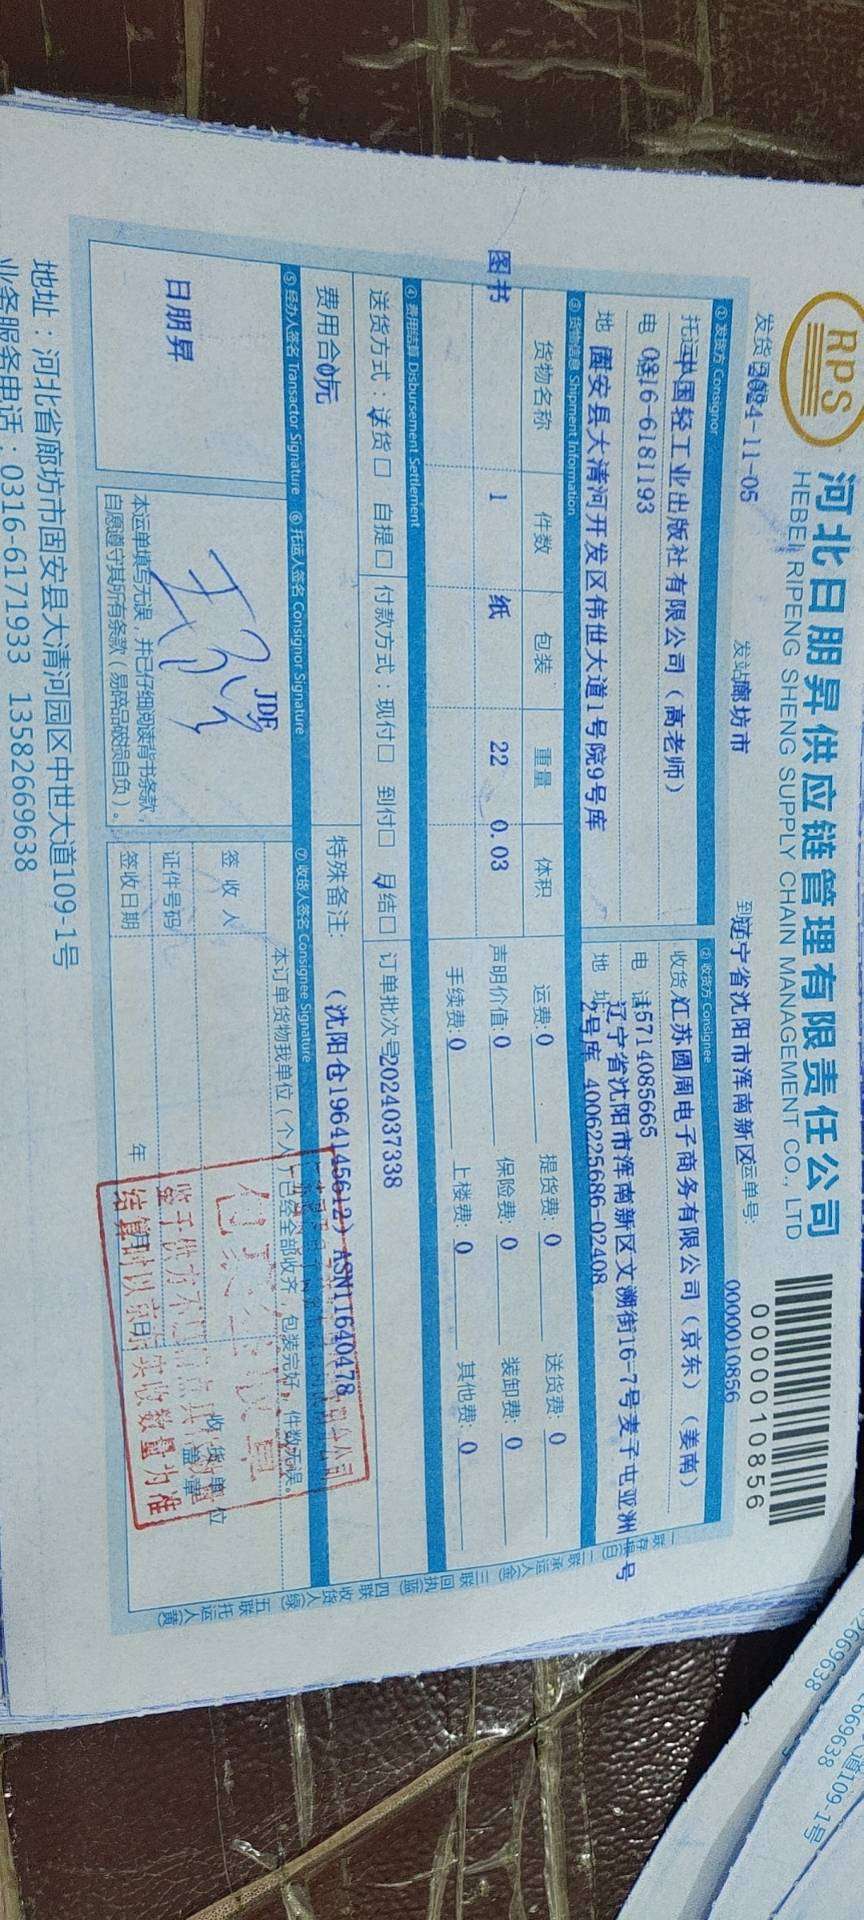 RPS
河北日朋昇供应链管理有限责任公司
HEBEI RIPENG SHENG SUPPLY CHAIN MANAGEMENT CO., LTD
0000010856
发货日期 2024-11-05 发站 廊坊市 到站 辽宁省沈阳市浑南新区 运单号: 0000010856
① 发货方 Consignor
托运 中国轻工业出版社有限公司（高老师）
电 0316-6181193
地 固安县大清河开发区伟世大道1号院9号库
② 收货方 Consignee
收货 江苏圆周电子商务有限公司（京东）（姜南）
电 话 15714085665
地 址 辽宁省沈阳市浑南新区文溯街16-7号麦子屯亚洲一号
2号库 4006225686-02408
③ 货物信息 Shipment Information
货物名称 件数 包装 重量 体积
图书 1 纸 22 0.03
运费: 0 提货费: 0 送货费: 0
声明价值: 0 保险费: 0 装卸费: 0
手续费: 0 上楼费: 0 其他费: 0
④ 费用结算 Disbursement Settlement
送货方式：送货□ 自提□ 付款方式：现付□ 到付□ 月结□ 订单批次号 2024037338
费用合 0元 特殊备注: （沈阳仓19641456​12）ASN11640478
⑤ 经办人签名 Transactor Signature
日朋昇
⑥ 托运人签名 Consignor Signature
JDE
本运单填写无误，并已仔细阅读背书条款，
自愿遵守其所有条款（易碎品破损自负）。
⑦ 收货人签名 Consignee Signature
本订单货物我单位（个人）已经全部收齐，包装完好，件数无误。
签收人
收货单位
盖章
证件号码
签收日期 年 月 日
结算时以京东实收数量为准
一联存根(白) 二联承运人(金) 三联回执(蓝) 四联收货人(绿) 五联托运人(黄)
地址：河北省廊坊市固安县大清河园区中世大道109-1号
业务服务电话：0316-6171933 13582669638
2669638
669638
道109-1号